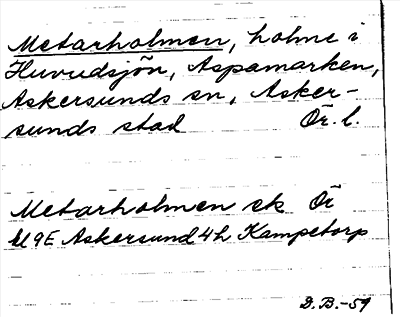 Metarholmen, holme i
Huvudsjön, Aspamarken,
Askersunds sn, Asker-
sunds stad Ör. l.
Metarholmen ek Ör
bl 9E Askersund 4h Kampetorp
D.B.-59